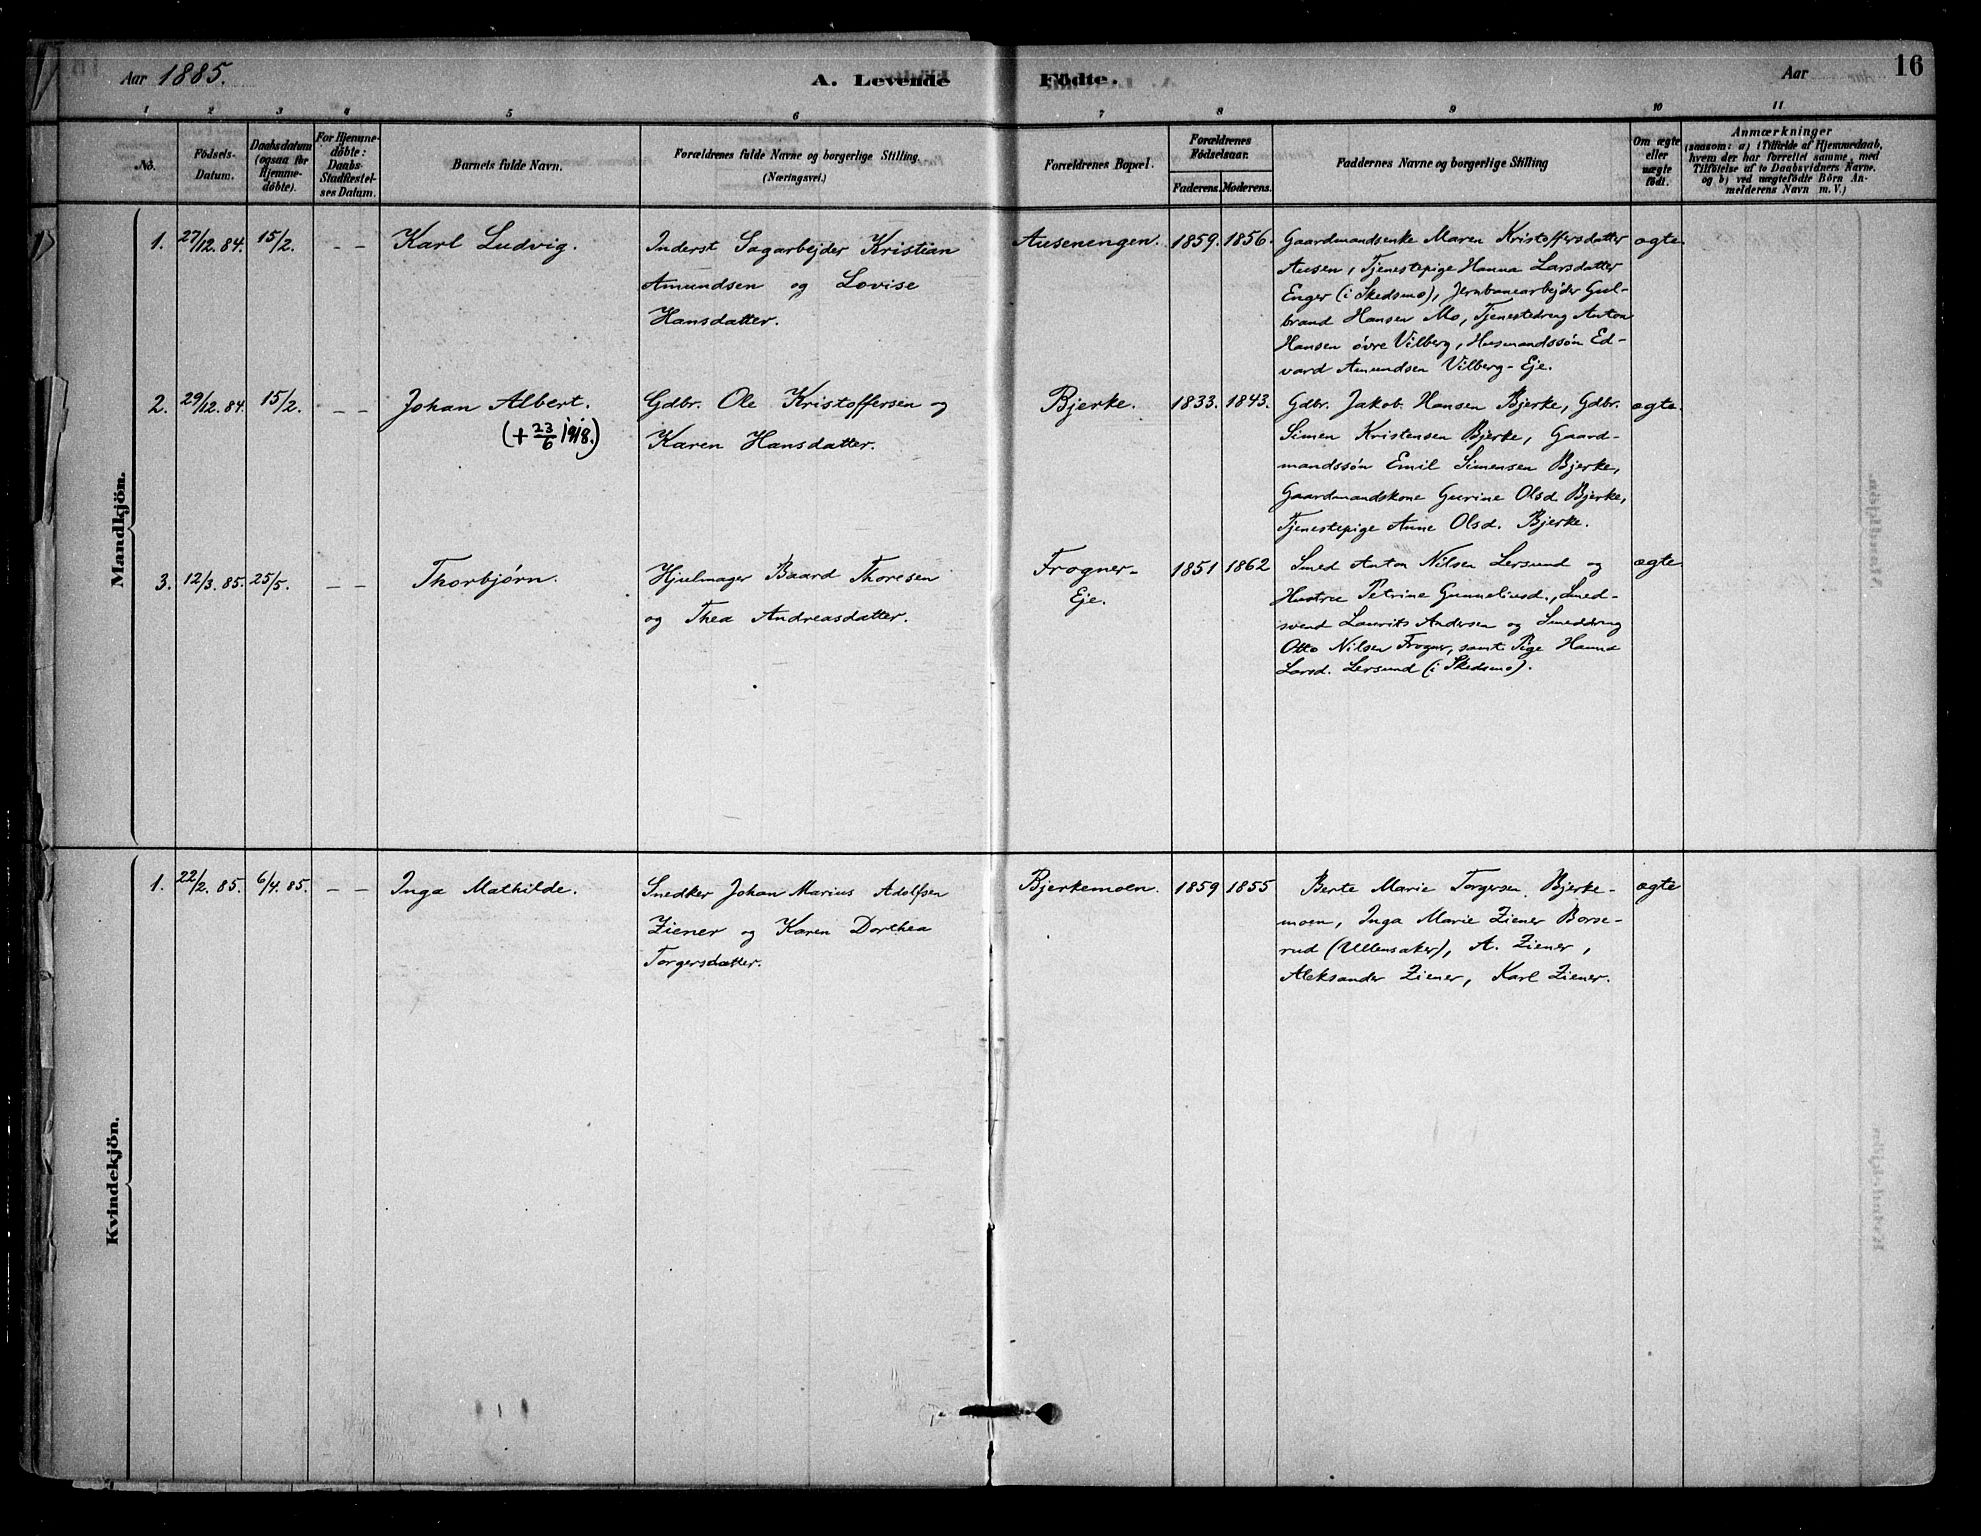 Aar 1885.
A. Levende Födte.
Aar
16
1 2 3 4 5 6 7 8 9 10 11
No.
Födsels-
Datum.
Daabsdatum
(ogsaa for
Hjemme-
döbte).
For Hjemme-
döbte:
Daabs-
Stadfæstel-
ses Datum.
Barnets fulde Navn.
Forældrenes fulde Navne og borgerlige Stilling.
(Næringsvei.)
Forældrenes Bopæl.
Forældrenes
Födselsaar.
Faderens. Moderens.
Faddernes Navne og borgerlige Stilling
Om ægte
eller
uægte
födt.
Anmærkninger
(saasom: a) i Tilfælde af Hjemmedaab,
hvem der har forrettet samme, med
Tilföielse af to Daabsvidners Navne.
og b) ved uægtefödte Börn An-
melderens Navn m. V.)
Mandkjön.
1. 27/12. 84. 15/2. – – Karl Ludvig.
Inderst Sagarbejder Kristian
Amundsen og Lovise
Hansdatter.
Auseneengen. 1859. 1856.
Gaardmandsenke Maren Kristoffersdatter
Ausen, Tjenestepige Hanna Larsdatter
Enger (i Skedsmo), Jernbanearbejder Gul-
brand Hansen Mo, Tjenestedreng Anton
Hansen øvre Vilberg, Husmandssøn Ed-
vard Amundsen Vilberg-Eje.
ægte.
2. 29/12. 84. 15/2. – – Johan Albert.
(+ 23/6 1918.)
Gdbr. Ole Kristoffersen og
Karen Hansdatter.
Bjerke. 1833. 1843.
Gdbr. Jakob Hansen Bjerke, Gdbr.
Simen Kristensen Bjerke, Gaard-
mandssøn Emil Simensen Bjerke,
Gaardmandskone Gurine Olsd. Bjerke,
Tjenestepige Anne Olsd. Bjerke.
ægte.
3. 12/3. 85. 25/5. – – Thorbjørn.
Hjulmager Baard Thoresen
og Thea Andreasdatter.
Frogner-
Eje.
1851 1862
Smed Anton Nilsen Lersund og
Hustru Petrine Gunneliusd., Smed-
svend Laurits Andersen og Smeddreng
Otto Nilsen Frogner, samt Pige Hanna
Larsd. Lersund (i Skedsmo).
ægte
Kvindekjön.
1. 22/2. 85. 6/4. 85. – – Inga Mathilde.
Snedker Johan Marius Adolfsen
Ziener og Karen Dorthea
Torgersdatter.
Bjerkemoen. 1859 1855
Berte Marie Torgersen Bjerke-
moen, Inga Marie Ziener Borse-
rud (Ullensaker), A. Ziener,
Aleksander Ziener, Karl Ziener.
ægte